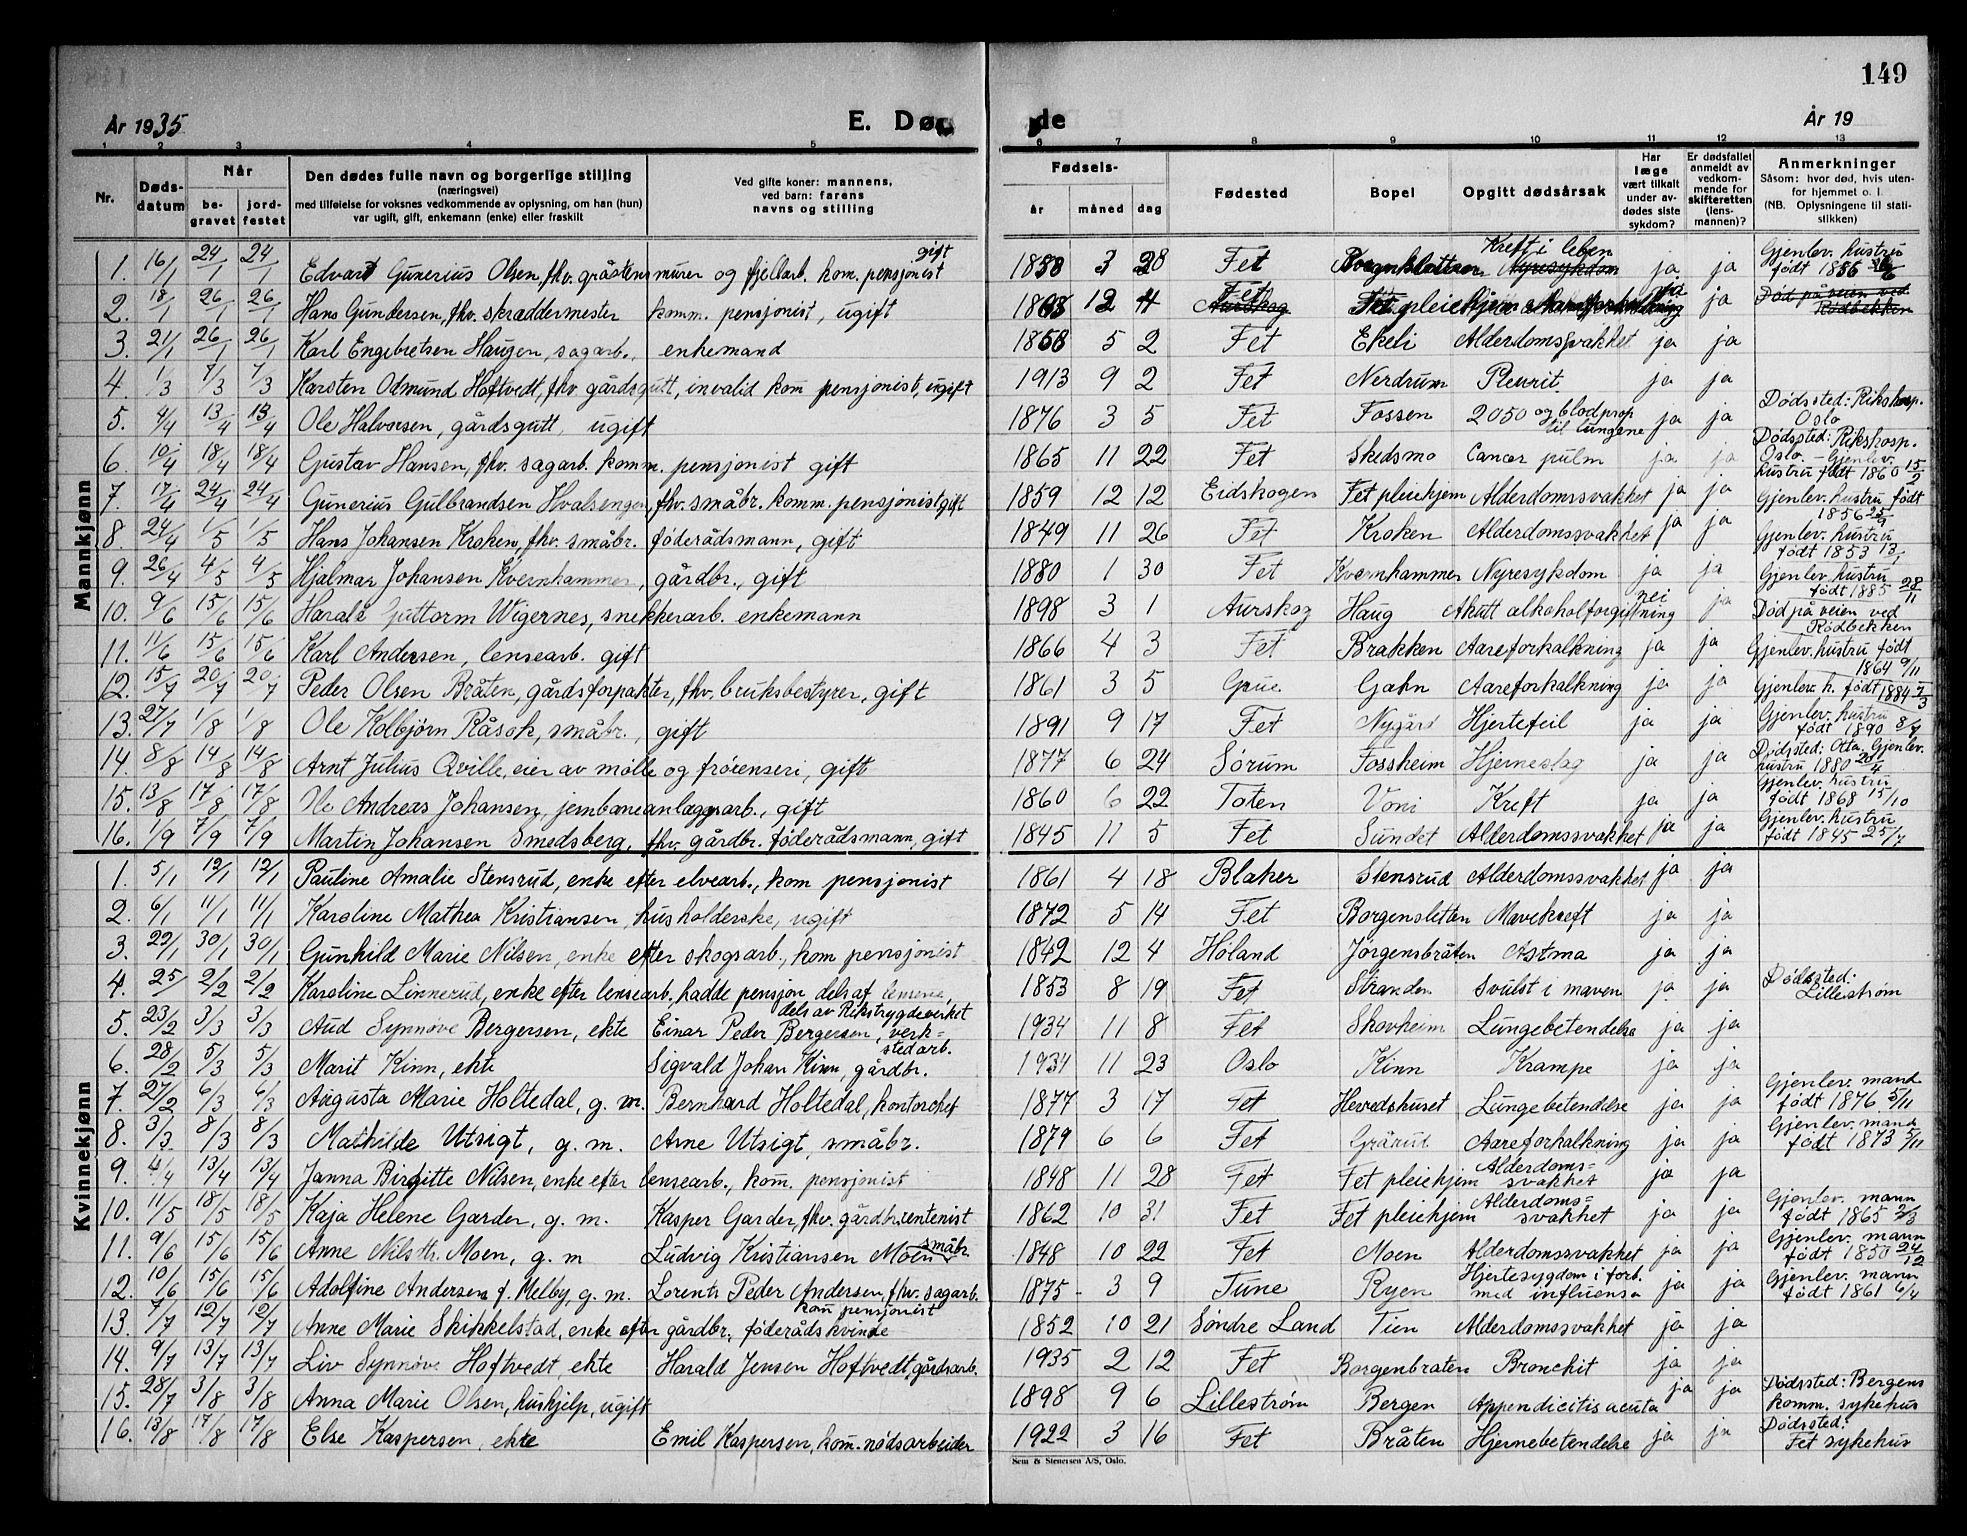 149
År 1935 E. Døde År 19
1 2 3 4 5 6 7 8 9 10 11 12 13
Nr. Døds-datum Når be-gravet jord-festet Den dødes fulle navn og borgerlige stilling (næringsvei) med tilføielse for voksnes vedkommende av oplysning, om han (hun) var ugift, gift, enkemann (enke) eller fraskilt Ved gifte koner: mannens, ved barn: farens navns og stilling Fødsels- år måned dag Fødested Bopel Opgitt dødsårsak Har læge vært tilkalt under av-dødes siste sykdom? Er dødsfallet anmeldt av vedkom-mende for skifteretten (lens-mannen)? Anmerkninger Såsom: hvor død, hvis uten-for hjemmet o. l. (NB. Oplysningene til stati-stikken)
Mannkjønn
1. 16/1 24/1 24/1 Edvard Gunerius Olsen, fhv. gråstensmurer og fjellarb. kom. pensjonist gift 1858 3 28 Fet Kreft i leben Nyresykdom ja ja Gjenlev. hustru født 1856
2. 18/1 26/1 26/1 Hans Gundersen, fhv. skræddermester komm. pensjonist, ugift 12 4 Fet Aurskog Fet pleiehjem Aareforkalkning ja ja Død på veien ved Rödbekken
3. 21/1 26/1 26/1 Karl Engebretsen Haugen, sagarb., enkemand 1858 5 2 Fet Ekeli Alderdomssvakhet ja ja
4. 1/3 7/3 7/3 Karsten Odmund Hoftvedt, fhv. gårdsgutt, invalid kom pensjonist, ugift 1913 9 2 Fet Nerdrum Pleurit ja ja
5. 4/4 13/4 13/4 Ole Halvorsen, gårdsgutt, ugift 1876 3 5 Fet Fossen 2050 og blodprop til lungene ja ja Dødssted: Rikshosp. Oslo
6. 10/4 18/4 18/4 Gustav Hansen, fhv. sagarb. komm. pensjonist gift 1865 11 22 Fet Skedsmo Cancer pulm ja ja Dødssted: Rikshosp. Oslo - Gjenlev. hustru født 1860 15/2
7. 17/4 24/4 24/4 Gunerius Gulbrandsen Hvalsengen, fhv. småbr. komm. pensjonist gift 1859 12 12 Eidskogen Fet pleiehjem Alderdomssvakhet ja ja Gjenlev. hustru født 1856 25/9
8. 24/4 1/5 1/5 Hans Johansen Kroken, fhv. småbr. føderådsmann, gift 1849 11 26 Fet Kroken Alderdomssvakhet ja ja Gjenlev. hustru født 1853 13/1
9. 26/4 4/5 4/5 Hjalmar Johansen Kvernhammer, gårdbr., gift 1880 1 30 Fet Kvernhammer Nyresykdom ja ja Gjenlev. hustru født 1885 28/11
10. 9/6 15/6 15/6 Harald Guttorm Wigernes, snekkerarb. enkemann 1898 3 1 Aurskog Haug Akutt alkoholforgiftning nei ja Død på veien ved Rödbekken
11. 11/6 15/6 15/6 Karl Andersen, lensearb. gift 1866 4 3 Fet Brakken Aareforkalkning ja ja Gjenlev. hustru født 1864 9/11
12. 15/7 20/7 20/7 Peder Olsen Bråten, gårdsforpakter, fhv. bruksbestyrer, gift 1861 3 5 Grue Gahn Aareforkalkning ja ja Gjenlev. h. født 1884 7/3
13. 27/7 1/8 1/8 Ole Kolbjørn Råsok, småbr., gift 1891 9 17 Fet Nygård Hjertefeil ja ja Gjenlev. hustru født 1890
14. 8/8 14/8 14/8 Arnt Julius Qville, eier av mølle og frörenseri, gift 1877 6 24 Sørum Fossheim Hjerneslag ja ja Dødssted: Otta. Gjenlev. hustru 1880
15. 13/8 17/8 17/8 Ole Andreas Johansen, jernbaneanleggsarb., gift 1860 6 22 Toten Voni Kreft ja ja Gjenlev. hustru født 1868 15/10
16. 1/9 7/9 7/9 Martin Johansen Smedsberg, fhv. gårdbr. føderådsmann, gift 1845 11 5 Fet Sundet Alderdomssvakhet ja ja Gjenlev. hustru født 1845 25/7
Kvinnekjønn
1. 5/1 12/1 12/1 Pauline Amalie Stensrud, enke efter elvearb., kom pensjonist 1861 4 18 Blaker Stensrud Alderdomssvakhet ja ja
2. 6/1 11/1 11/1 Karoline Mathea Kristiansen, husholderske, ugift 1872 5 14 Fet Borgensletten Mavekreft ja ja
3. 22/1 30/1 30/1 Gunhild Marie Nilsen, enke efter skogsarb., kom pensjonist 1842 12 4 Høland Jørgensbråten Astma ja ja
4. 25/1 2/2 2/2 Karoline Linnerud, enke efter lensearb. hadde pensjon dels af lensene, dels av Rikstrygdeverket 1853 8 19 Fet Stranden Svulst i maven ja ja Dødssted: Lillestrøm
5. 23/2 3/3 3/3 Aud Synnøve Bergersen, ekte Einar Peder Bergersen, verkstedarb. 1934 11 8 Fet Skovheim Lungebetendelse ja ja
6. 28/2 5/3 5/3 Marit Kinn, ekte Sigvald Johan Kinn, gårdbr. 1934 11 23 Oslo Kinn Krampe ja ja
7. 27/2 6/3 6/3 Augusta Marie Holtedal, g. m. Bernhard Holtedal, kontorchef 1877 3 17 Fet Hovedshuset Lungebetendelse ja ja Gjenlev. mand født 1876 5/11
8. 3/3 8/3 8/3 Mathilde Utsigt, g. m. Arne Utsigt, småbr. 1879 6 6 Fet Grårud Aareforkalkning ja ja Gjenlev. mand født 1873 5/11
9. 4/4 13/4 13/4 Janna Birgitte Nilsen, enke efter lensearb., kom. pensjonist 1848 11 28 Fet Fet pleiehjem Alderdoms=svakhet ja ja
10. 11/5 18/5 18/5 Kaja Helene Garder, g. m. Kasper Garder, fhv. gårdbr. rentenist 1862 10 31 Fet Fet pleiehjem Alderdoms=svakhet ja ja Gjenlev. mann født 1865 2/3
11. 9/6 15/6 15/6 Anne Nilsdtr. Moen, g. m Ludvig Kristiansen Moen småbr. 1848 10 22 Fet Moen Alderdomssvakhet ja ja Gjenlev. mann født 1850 24/12
12. 10/6 15/6 15/6 Adolfine Andersen f. Melby, g. m. Lorents Peder Andersen, fhv. sagarb. kom pensjonist 1875 3 9 Tune Ryen Hjertesygdom i forb. med influensa ja ja Gjenlev. mann født 1861 6/4
13. 7/7 12/7 12/7 Anne Marie Skikkelstad, enke efter gårdbr., føderådskvinde 1852 10 21 Søndre Land Tien Alderdomssvakhet ja ja
14. 9/7 13/7 13/7 Liv Synnøve Hoftvedt, ekte Harald Jensen Hoftvedt, gårdsarb. 1935 2 12 Fet Borgenbråten Bronchit ja ja
15. 28/7 3/8 3/8 Anna Marie Olsen, hushjelp, ugift 1898 9 6 Lillestrøm Bergen Appendicitis acuta ja ja Dødssted: Bergens komm. sykehus
16. 13/8 17/8 17/8 Else Kaspersen, ekte Emil Kaspersen, kom. nødsarbeider 1922 3 16 Fet Bråten Hjernebetendelse ja ja Dødssted: Fet sykehus
Sem & Stenersen A/S, Oslo.